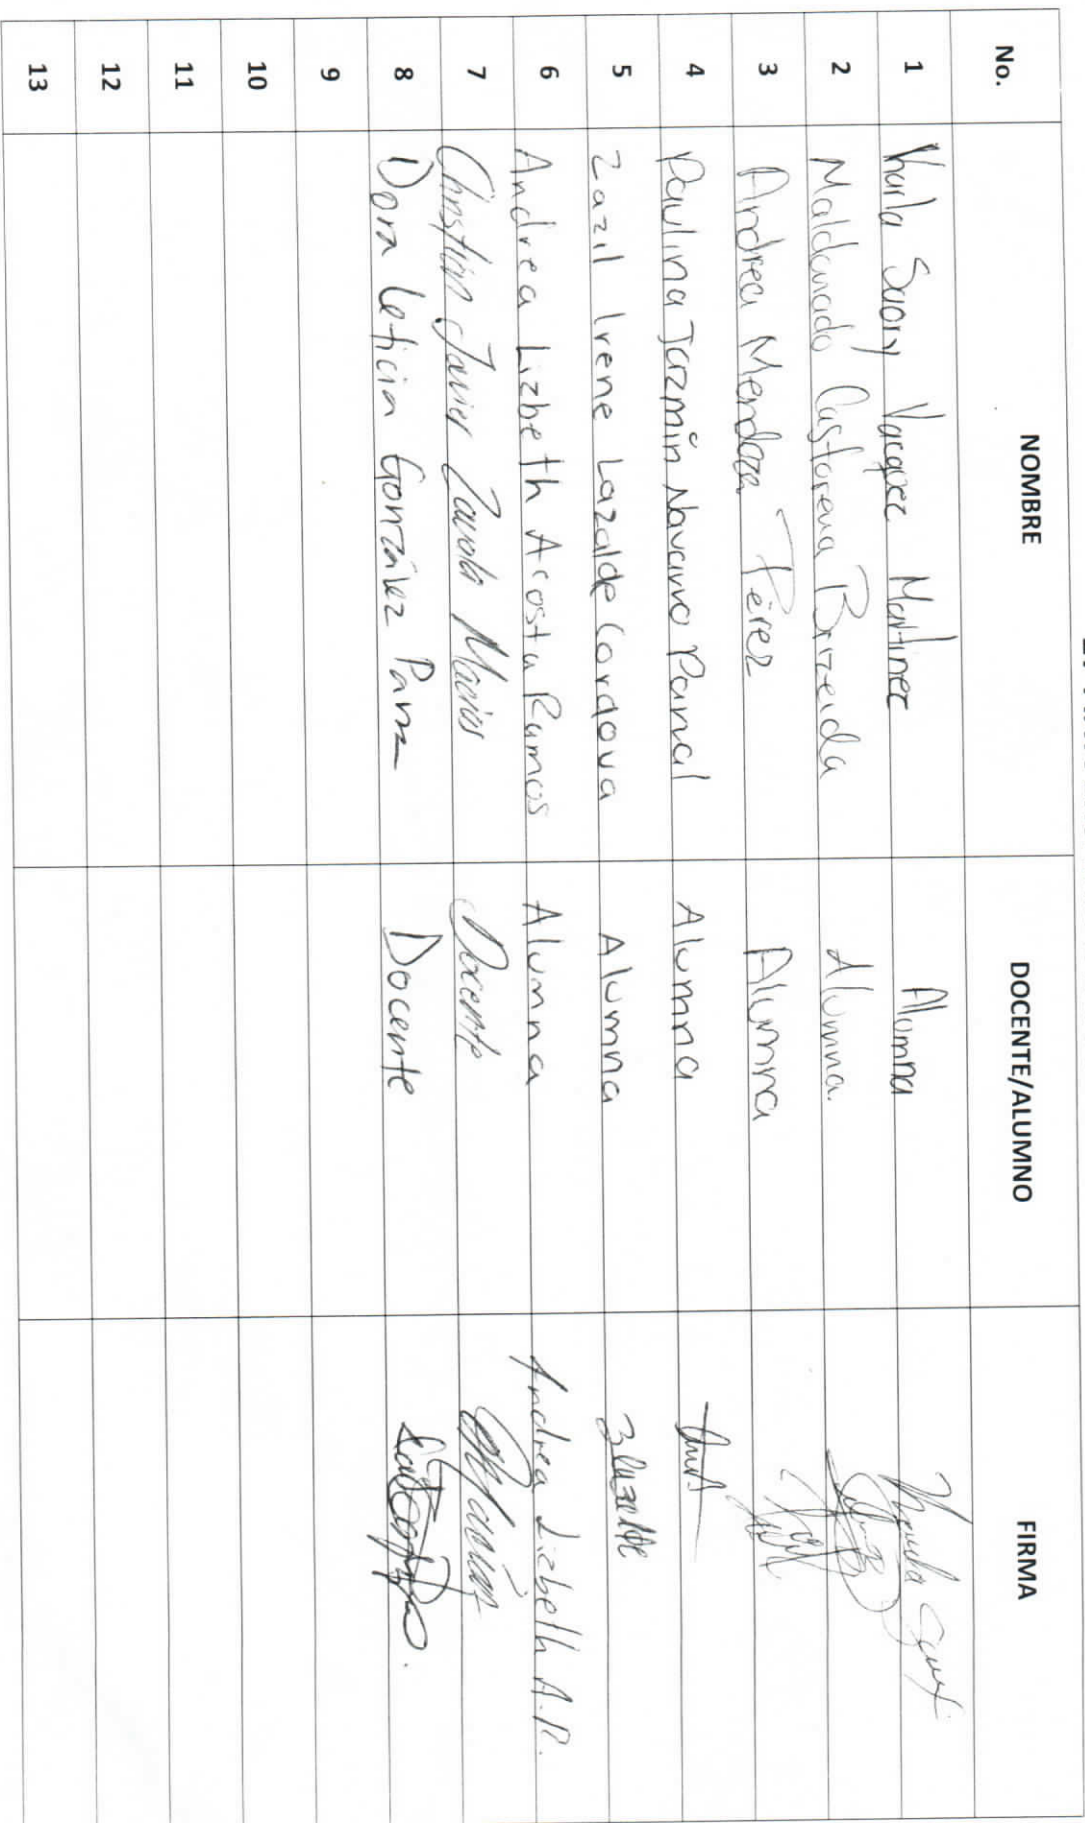 No. NOMBRE DOCENTE/ALUMNO FIRMA
1 Karla Vazquez Martinez Alumna
2 Maldonado Castorena Brizeida Alumna.
3 Andrea Mendoza Pérez Alumna
4 Paulina Jazmín Navarro Alumna
5 Zazil Irene Lazalde Cordova Alumna
6 Andrea Lizbeth Acosta Ramos Alumna Andrea Lizbeth A.R.
7 Christian Javier Zavala Macias Docente
8 Dora Leticia González Docente
9
10
11
12
13